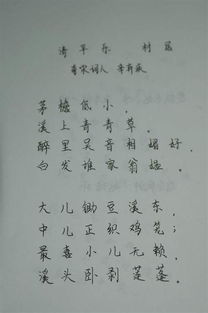 清平乐 村居
南宋词人 辛弃疾
茅檐低小，
溪上青青草。
醉里吴音相媚好，
白发谁家翁媪。
大儿锄豆溪东，
中儿正织鸡笼；
最喜小儿无赖，
溪头卧剥莲蓬。